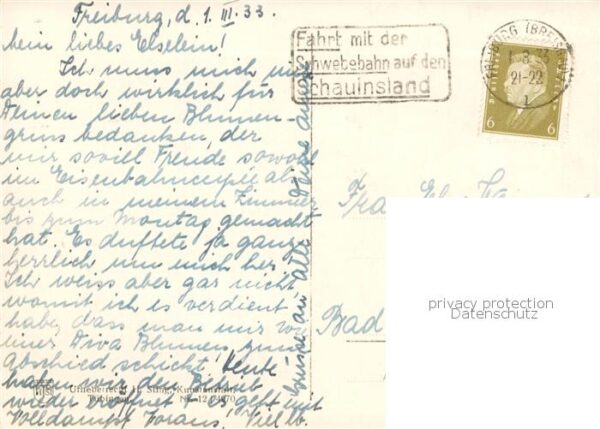 Freiburg, d. 1. III. 33.
Mein liebes Elselein!
Ich muss mich nun
aber doch wirklich für
Deinen lieben Blumen-
gruss bedanken, der
mir soviel Freude sowohl
im Eisenbahncoupé als
auch in meinem Zimmer
bis zum Montag gemacht
hat. Es duftete ja ganz
herrlich um mich her!
Ich weiss aber gar nicht
womit ich es verdient
habe, dass man mir wie
einer Diva Blumen zum
Abschied schickt! Heute
haben wir den Betrieb
wieder eröffnet, es geht mit
Volldampf Voraus! Viel lb.
Grüsse an alle Deine
Fahrt mit der
Schwebebahn auf den
Schauinsland
FREIBURG (BREISGAU)
21-22
1
6 6
Frau
Bad
Urheberrecht H. Sting, Kunstanstalt
Tübingen Nr. 12 74970
privacy protection
Datenschutz